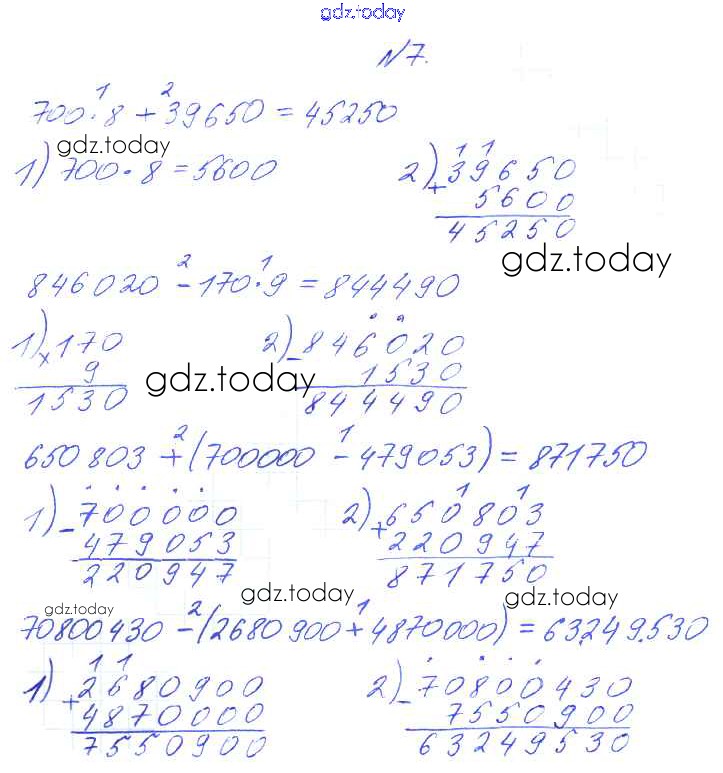 gdz.today
N7.
1 2
700·8 + 39650 = 45250
gdz.today
1) 700·8 = 5600
2) 11
+39650
5600
45250
gdz.today
2 1
846020 - 170·9 = 844490
1) ×170
9
1530
gdz.today
2) -846020
1530
844490
2 1
650803 + (700000 - 479053) = 871750
1) -700000
479053
220947
2) 1 1
+650803
220947
871750
gdz.today gdz.today gdz.today
2 1
70800430 - (2680900 + 4870000) = 63249530
1) 11
+2680900
4870000
7550900
2) -70800430
7550900
63249530